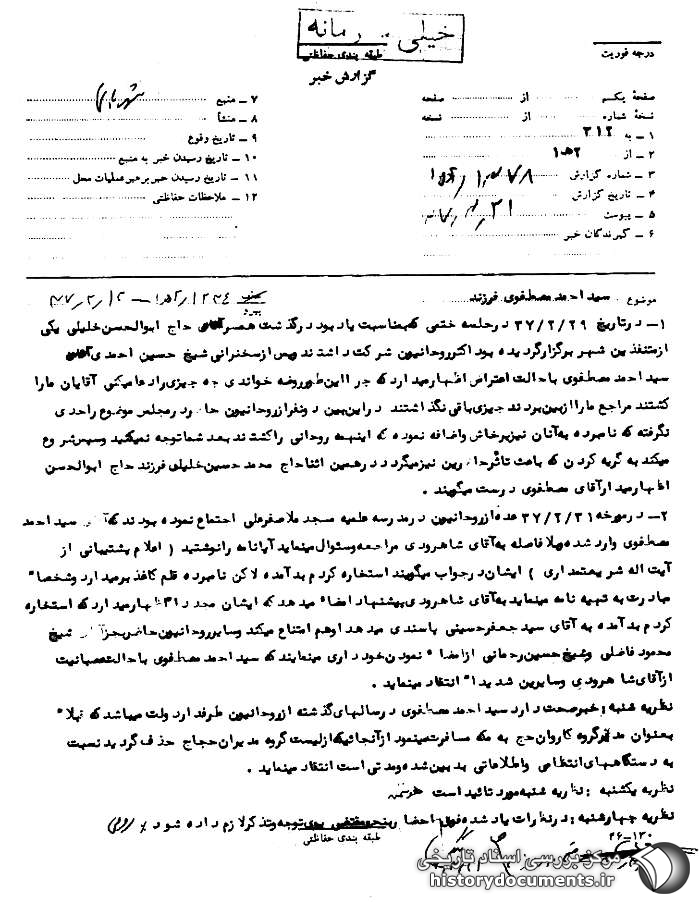 خیلی محرمانه
طبقه بندی حفاظتی
درجه فوریت
گزارش خبر
صفحهٔ یکم از صفحه
نسخهٔ شماره از نسخه
۱ ــ به ۳۱۲
۲ ــ از ۱ﻫ۲
۳ ــ شماره گزارش
۴ ــ تاریخ گزارش
۵ ــ پیوست
۶ ــ گیرندگان خبر
۷ ــ منبع
۸ ــ منشأ
۹ ــ تاریخ وقوع
۱۰ ــ تاریخ رسیدن خبر به منبع
۱۱ ــ تاریخ رسیدن خبر برهبر عملیات محل
۱۲ ــ ملاحظات حفاظتی
موضوع سید احمد مصطفوی فرزند
۱ــ در تاریخ ۳۷/۲/۲۹ در جلسه ختمی که بمناسبت یاد بود درگذشت همسر آقای حاج ابوالحسن خلیلی یکی
از متنفذین شهر برگزار گردیده بود اکثر روحانیون شرکت داشتند پس از سخنرانی شیخ حسین احمدی آقای
سید احمد مصطفوی با حالت اعتراض اظهار میدارد که چرا اینطور روضه خواندی چه چیزی را دعا میکنی آقایان ما را
کشتند مراجع ما را از بین بردند چیزی باقی نگذاشتند در این بین دو نفر از روحانیون حاضر در مجلس موضوع را جدی
نگرفته که نامبرده به آنان نیز پرخاش واضافه نموده که اینهمه روحانی را کشتند بعد شما توجه نمیکنید وسپس شروع
میکند به گریه کردن که باعث تأثر حاضرین نیز میگردد در همین اثنا حاج محمد حسین خلیلی فرزند حاج ابوالحسن
اظهار میدارد آقای مصطفوی درست میگویند .
۲ــ در مورخه ۳۷/۲/۳۱ عده ای از روحانیون در مدرسه علمیه مسجد ملاصفرعلی اجتماع نموده بودند که آقای سید احمد
مصطفوی وارد شده وبلافاصله به آقای شاهرودی مراجعه وسئوال مینماید آیا نامه را نوشتید ( اعلام پشتیبانی از
آیت اله شریعتمداری ) ایشان در جواب میگویند استخاره کردم بد آمده لاکن نامبرده قلم کاغذ برمیدارد وشخصا"
مبادرت به تهیه نامه مینماید به آقای شاهرودی پیشنهاد امضاء میدهد که ایشان مجددا" اظهار میدارد که استخاره
کردم بد آمده به آقای سید جعفر حسینی پاسندی میدهد او هم امتناع میکند وسایر روحانیون حاضر بجز آقای شیخ
محمود فاضلی وشیخ حسین رحمانی از امضاء نمودن خودداری مینمایند که سید احمد مصطفوی با حالت عصبانیت
از آقای شاهرودی وسایرین شدیدا" انتقاد مینماید .
نظریه شنبه : خبر صحت دارد سید احمد مصطفوی در سالهای گذشته از روحانیون طرفدار دولت میباشد که قبلا"
بعنوان مدیر گروه کاروان حج به مکه مسافرت مینمود از آنجائیکه از لیست گروه مدیران حجاج حذف گردید نسبت
به دستگاههای انتظامی واطلاعاتی بدبین شده ومدتی است انتقاد مینماید .
نظریه یکشنبه : نظریه شنبه مورد تائید است
نظریه چهارشنبه : در نظرات یاد شده فوق احضار توجه وتذکر لازم داده شود
طبقه بندی حفاظتی
۲۶ــ۱۳۰
مرکز بررسی اسناد تاریخی
historydocuments.ir